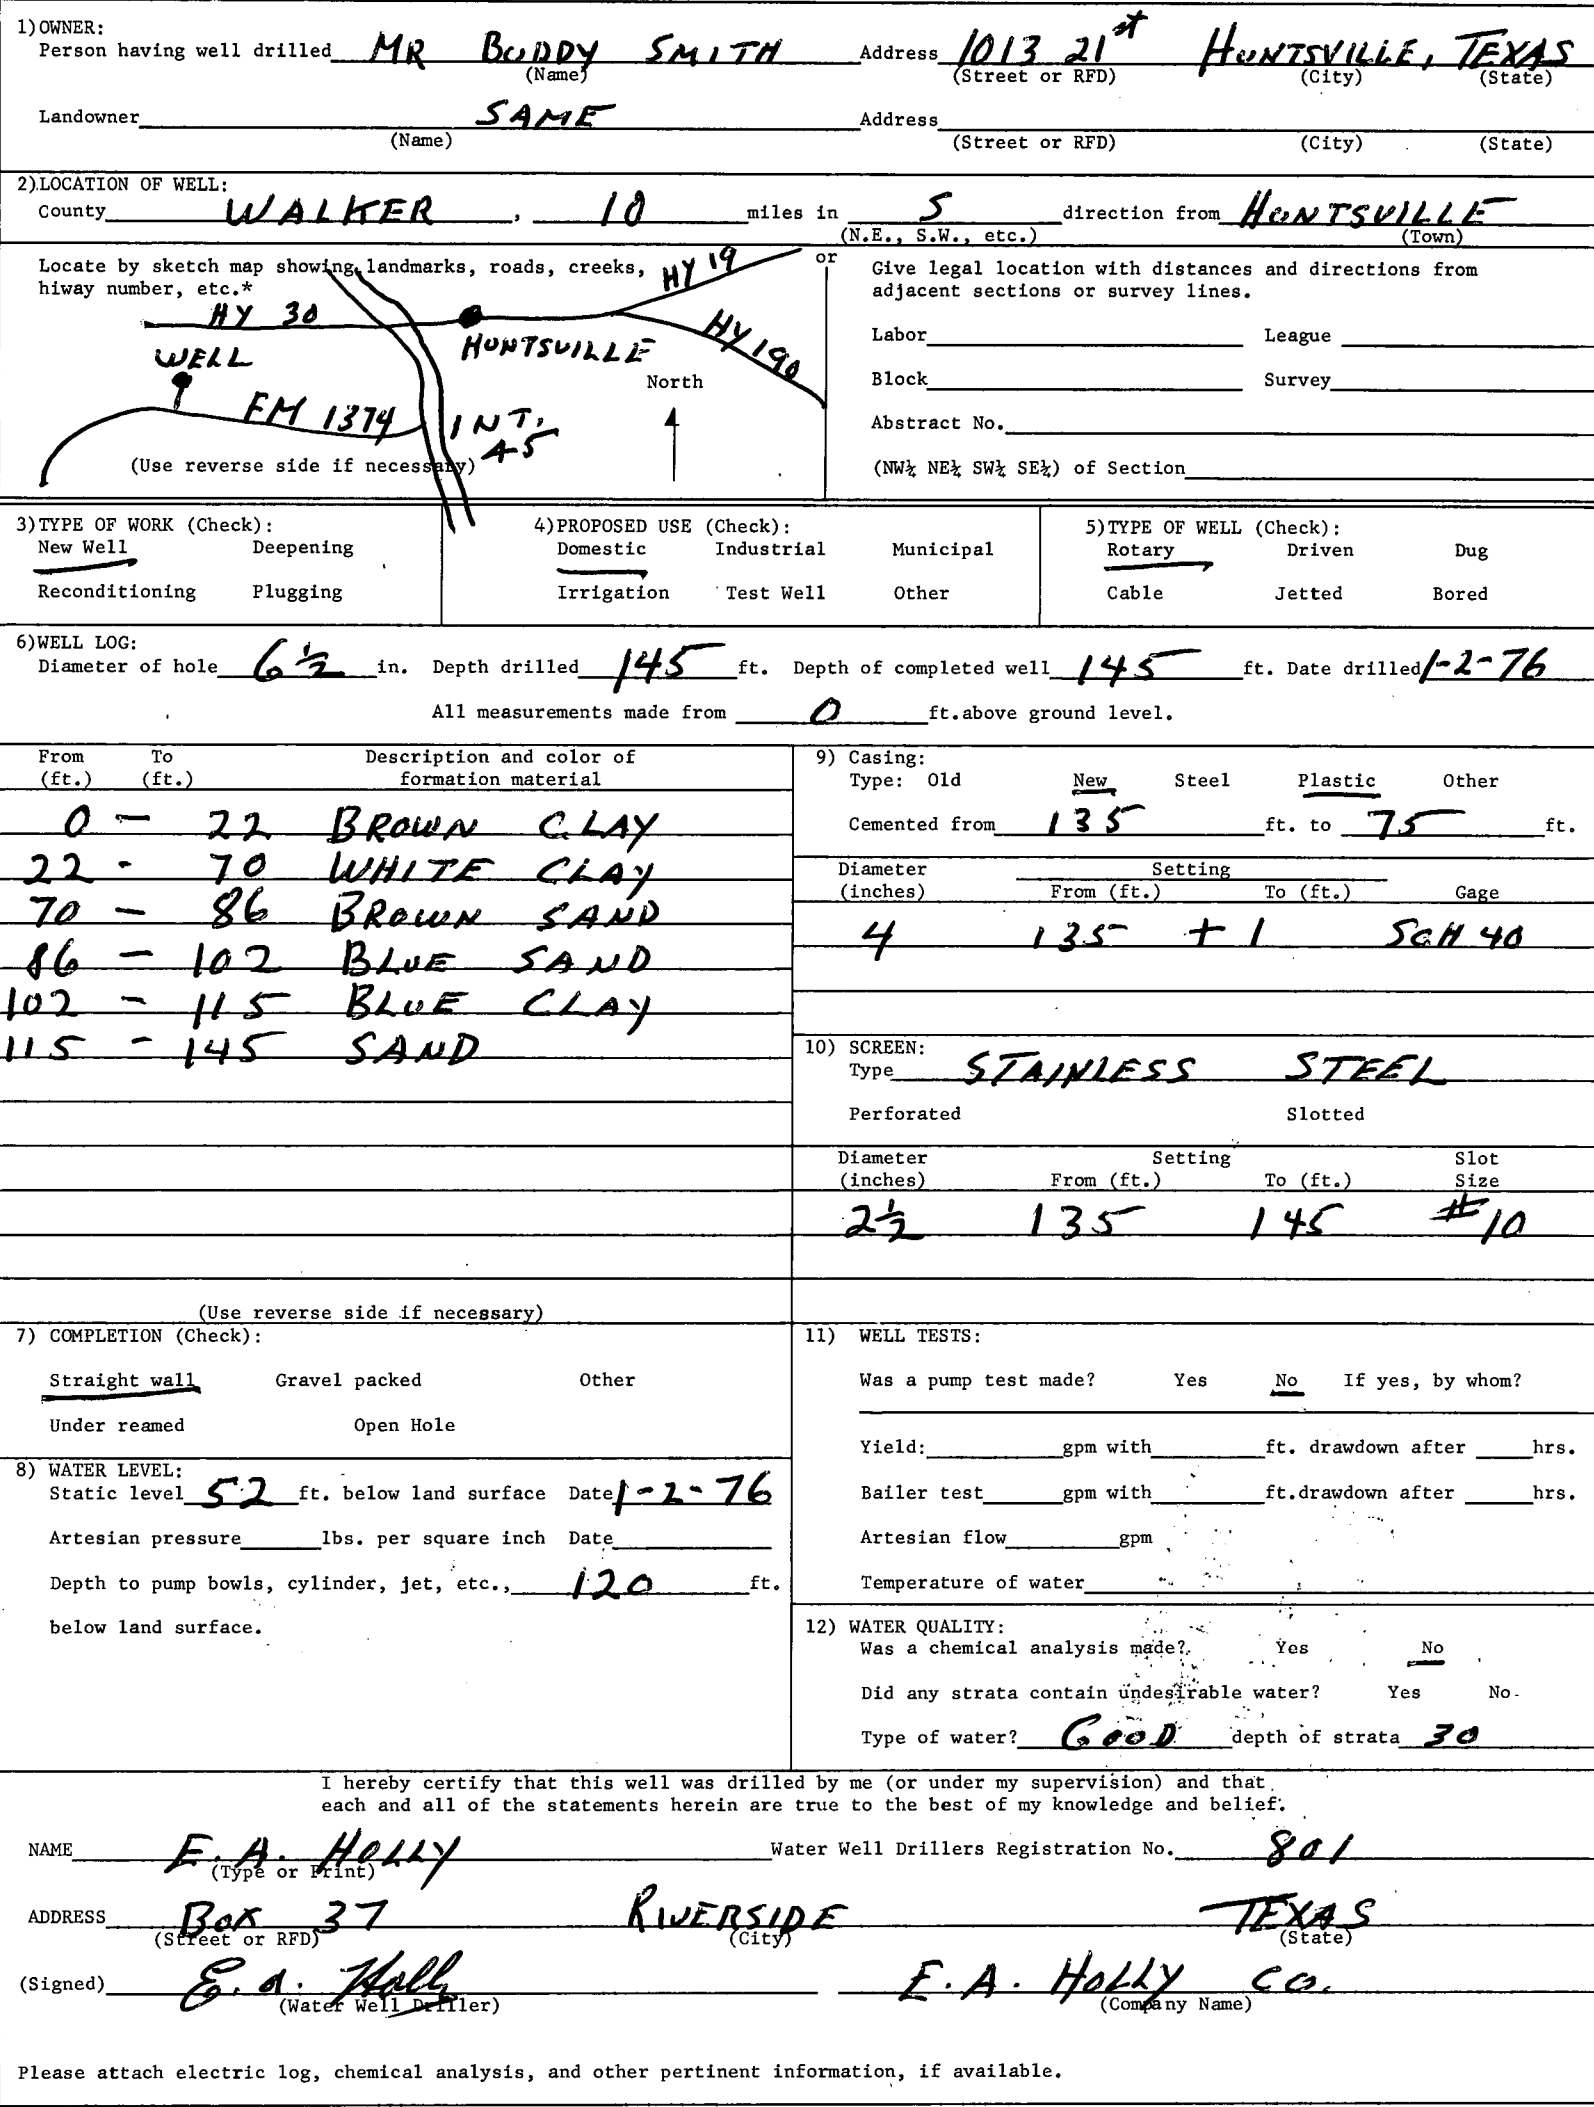 1) OWNER:
Person having well drilled MR BUDDY SMITH Address 1013 21st HUNTSVILLE, TEXAS
(Name) (Street or RFD) (City) (State)
Landowner SAME Address
(Name) (Street or RFD) (City) (State)
2) LOCATION OF WELL:
County WALKER, 10 miles in S direction from HUNTSVILLE
(N.E., S.W., etc.) (Town)
Locate by sketch map showing landmarks, roads, creeks,
hiway number, etc.*
HY 19
HY 30
HUNTSVILLE
HY 190
WELL
North
FM 1374
INT.
45
(Use reverse side if necessary)
or
Give legal location with distances and directions from
adjacent sections or survey lines.
Labor League
Block Survey
Abstract No.
(NW¼ NE¼ SW¼ SE¼) of Section
3) TYPE OF WORK (Check):
New Well Deepening
Reconditioning Plugging
4) PROPOSED USE (Check):
Domestic Industrial Municipal
Irrigation Test Well Other
5) TYPE OF WELL (Check):
Rotary Driven Dug
Cable Jetted Bored
6) WELL LOG:
Diameter of hole 6 1/2 in. Depth drilled 145 ft. Depth of completed well 145 ft. Date drilled 1-2-76
All measurements made from 0 ft. above ground level.
From To Description and color of
(ft.) (ft.) formation material
0 - 22 BROWN CLAY
22 - 70 WHITE CLAY
70 - 86 BROWN SAND
86 - 102 BLUE SAND
102 - 115 BLUE CLAY
115 - 145 SAND
(Use reverse side if necessary)
9) Casing:
Type: Old New Steel Plastic Other
Cemented from 135 ft. to 75 ft.
Diameter Setting
(inches) From (ft.) To (ft.) Gage
4 135 + 1 SCH 40
10) SCREEN:
Type STAINLESS STEEL
Perforated Slotted
Diameter Setting Slot
(inches) From (ft.) To (ft.) Size
2 1/2 135 145 #10
7) COMPLETION (Check):
Straight wall Gravel packed Other
Under reamed Open Hole
8) WATER LEVEL:
Static level 52 ft. below land surface Date 1-2-76
Artesian pressure lbs. per square inch Date
Depth to pump bowls, cylinder, jet, etc., 120 ft.
below land surface.
11) WELL TESTS:
Was a pump test made? Yes No If yes, by whom?
Yield: gpm with ft. drawdown after hrs.
Bailer test gpm with ft. drawdown after hrs.
Artesian flow gpm
Temperature of water
12) WATER QUALITY:
Was a chemical analysis made? Yes No
Did any strata contain undesirable water? Yes No
Type of water? GOOD depth of strata 30
I hereby certify that this well was drilled by me (or under my supervision) and that
each and all of the statements herein are true to the best of my knowledge and belief.
NAME E. A. HOLLY Water Well Drillers Registration No. 801
(Type or Print)
ADDRESS BOX 37 RIVERSIDE TEXAS
(Street or RFD) (City) (State)
(Signed) E. A. Holly E. A. HOLLY CO.
(Water Well Driller) (Company Name)
Please attach electric log, chemical analysis, and other pertinent information, if available.